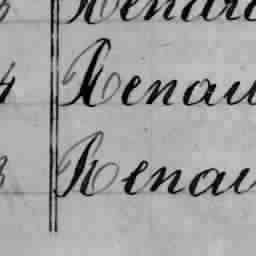 Renau
4 Renau
3 Renau